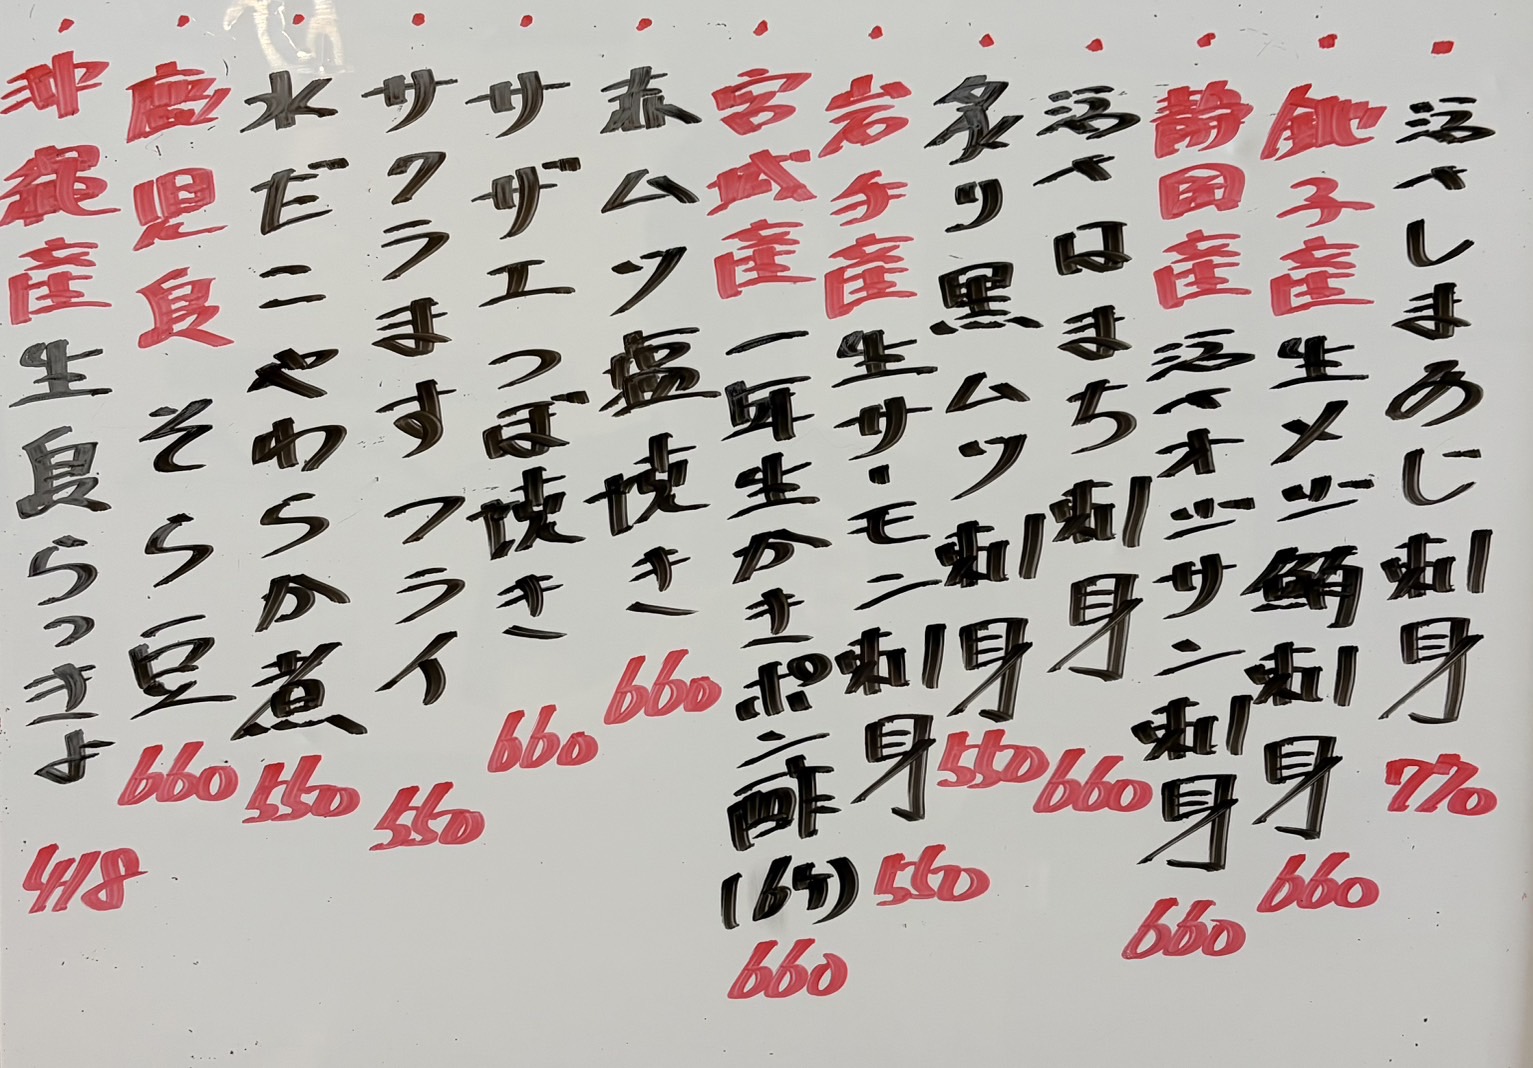 活〆しまあじ刺身 770
銚子産生メジ鮪刺身 660
静岡産活〆オジサン刺身 660
活〆はまち刺身 660
炙り黒ムツ刺身 550
岩手産生サーモン刺身 550
宮城産一年生かきポン酢(6ケ) 660
赤ムツ塩焼き 660
サザエつぼ焼き 660
サクラますフライ 550
水だこやわらか煮 550
鹿児島そら豆 660
沖縄産生島らっきょ 418